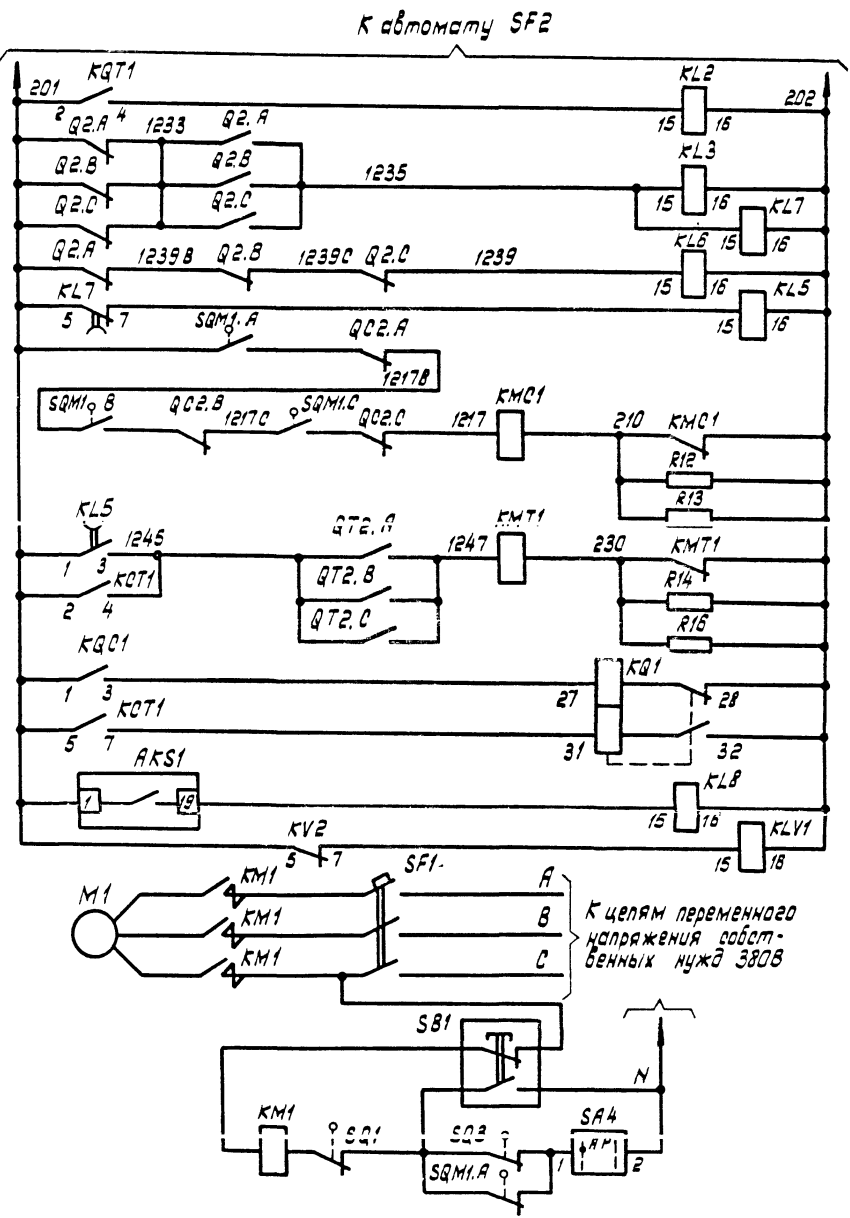 К автомату SF2
KQT1
KL2
201
202
2 4
15 16
Q2.A 1233 Q2.A
KL3
Q2.B Q2.B
1235
15 16
KL7
Q2.C Q2.C
15 16
KL6
Q2.A 1239B Q2.B 1239C Q2.C 1239
15 16
KL5
KL7
5 7
15 16
SQM1.A
QC2.A
1217B
SQM1 B QC2.B 1217C SQM1.C QC2.C 1217 KMC1 210 KMC1
R12
R13
KL5
1245
QT2.A 1247 KMT1 230 KMT1
1 3
KCT1
QT2.B
R14
2 4
QT2.C
R16
KQC1
KQ1
1 3
27 28
KCT1
5 7
31 32
AKS1
1 19
KL8
15 16
KV2
5 7
KLV1
15 18
M1
KM1 SF1 A
KM1 B
KM1 C
К цепям переменного
напряжения собст-
венных нужд 380В
SB1
N
KM1
SQ1
SQ3
SA4
AP
1 2
SQM1.A